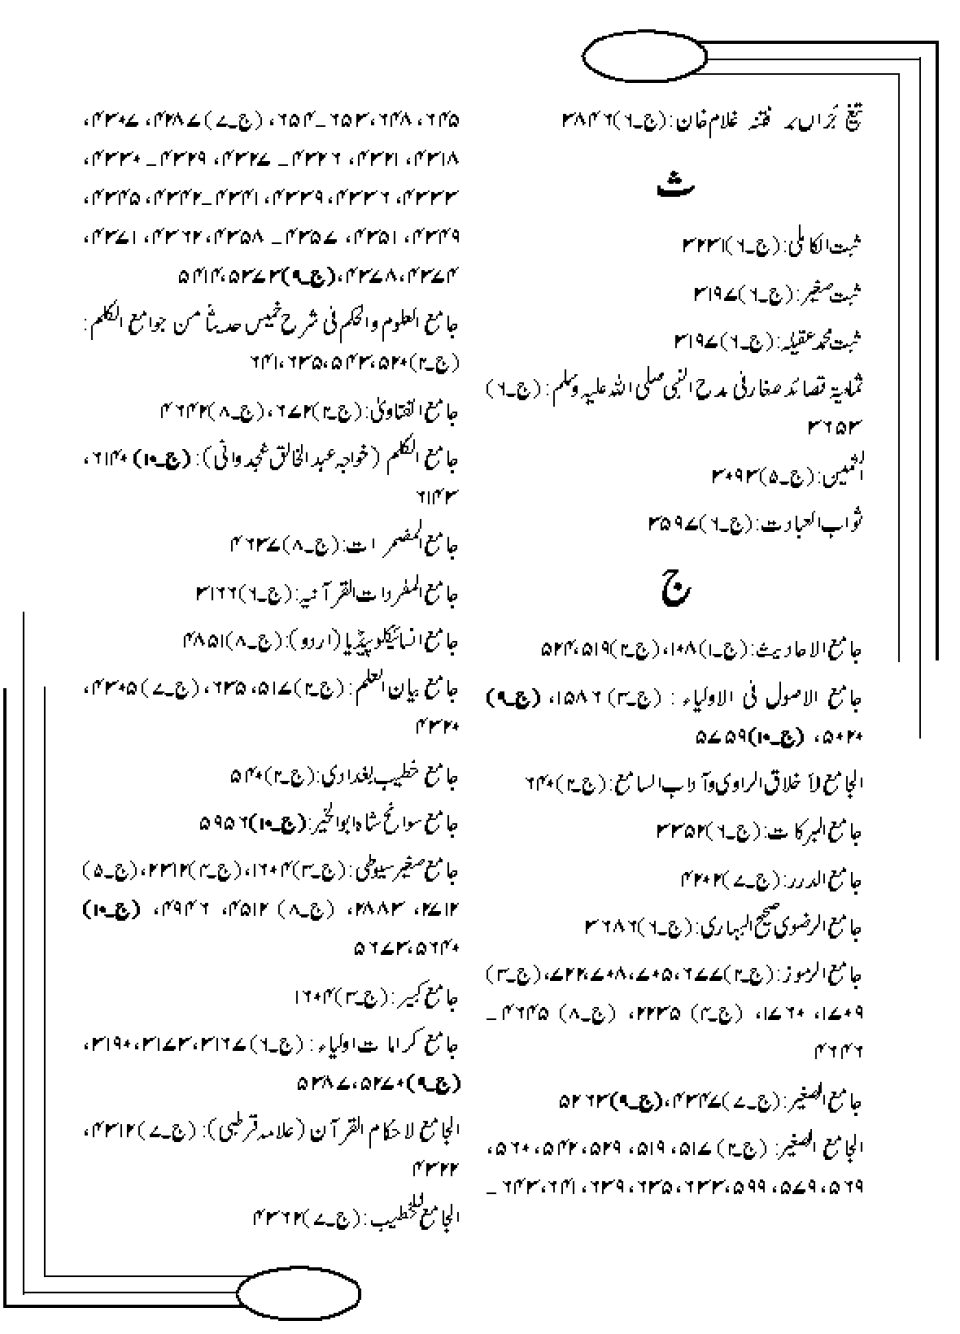 تیغ بُراں بر فتنہ غلام خان:(ج۔۶)۳۸۴۶
ث
ثبت الکاملی:(ج۔۶)۳۲۳۱
ثبت صغیر:(ج۔۶)۳۱۹۷
ثبت محمد عقیلہ:(ج۔۶)۳۱۹۷
ثمانیۃ قصائد صغار فی مدح النبی صلی اللہ علیہ وسلم:(ج۔۶)
۳۶۵۳
الثمین:(ج۔۵)۳۰۹۳
ثواب العبادت:(ج۔۶)۳۵۹۷
ج
جامع الاحادیث:(ج۔۱)۱۰۸، (ج۔۲)۵۱۹، ۵۲۴
جامع الاصول فی الاولیاء : (ج۔۳)۱۵۸۶، (ج۔۹)
۵۰۲۰، (ج۔۱۰)۵۷۵۹
الجامع لأخلاق الراوی وآداب السامع:(ج۔۲)۶۴۰
جامع البرکات:(ج۔۶)۳۳۵۲
جامع الدرر:(ج۔۷)۴۲۰۲
جامع الرضوی صحیح البہاری:(ج۔۶)۳۶۸۶
جامع الرموز:(ج۔۲)۶۷۷، ۷۰۵، ۷۰۸، ۷۲۲، (ج۔۳)
۱۷۰۹، ۱۷۶۰، (ج۔۴) ۲۲۳۵، (ج۔۸) ۴۶۴۵ـ
۴۶۴۶
جامع الصغیر:(ج۔۷)۴۳۴۷، (ج۔۹)۵۲۶۳
الجامع الصغیر: (ج۔۲) ۵۱۷، ۵۱۹، ۵۲۹، ۵۴۲، ۵۶۰،
۵۶۹، ۵۷۹، ۵۹۹، ۶۳۳، ۶۳۵، ۶۳۹، ۶۴۱، ۶۴۳ـ
۶۴۵، ۶۴۸، ۶۵۳ـ۶۵۴، (ج۔۷)۴۲۸۷، ۴۳۰۷،
۴۳۱۸، ۴۳۲۱، ۴۳۲۶ـ۴۳۲۷، ۴۳۲۹ـ۴۳۳۰،
۴۳۳۳، ۴۳۳۶، ۴۳۳۹، ۴۳۴۱ـ۴۳۴۲، ۴۳۴۵،
۴۳۴۹، ۴۳۵۱، ۴۳۵۷ـ۴۳۵۸، ۴۳۶۲، ۴۳۷۱،
۴۳۷۴، ۴۳۷۸، (ج۔۹)۵۳۷۳، ۵۴۱۴
جامع العلوم والحکم فی شرح خمیس حدیثاً من جوامع الکلم:
(ج۔۲)۵۲۰، ۵۴۳، ۶۳۵، ۶۴۱
جامع الفتاویٰ:(ج۔۲)۶۷۲، (ج۔۸)۴۶۴۲
جامع الکلم (خواجہ عبد الخالق غجدوانی):(ج۔۱۰) ۶۱۴۰،
۶۱۴۳
جامع المضمرات:(ج۔۸)۴۶۳۷
جامع المفردات القرآنیہ:(ج۔۶)۳۱۶۶
جامع انسائیکلوپیڈیا (اردو):(ج۔۸)۴۸۵۱
جامع بیان العلم:(ج۔۲)۵۱۷، ۶۳۵، (ج۔۷)۴۳۰۵،
۴۳۲۰
جامع خطیب بغدادی:(ج۔۲)۵۴۰
جامع سوانح شاہ ابوالخیر:(ج۔۱۰)۵۹۵۶
جامع صغیر سیوطی:(ج۔۳)۱۶۰۴، (ج۔۴)۲۳۱۲، (ج۔۵)
۲۷۱۲، ۲۸۸۳، (ج۔۸) ۴۵۱۲، ۴۹۴۶، (ج۔۱۰)
۵۶۴۰، ۵۶۷۳
جامع کبیر:(ج۔۳)۱۶۰۴
جامع کرامات اولیاء:(ج۔۶)۳۱۶۷، ۳۱۷۳، ۳۱۹۰،
(ج۔۹)۵۲۷۰، ۵۳۸۷
الجامع لاحکام القرآن (علامہ قرطبی):(ج۔۷)۴۳۱۲،
۴۳۲۲
الجامع للخطیب:(ج۔۷)۴۳۶۲